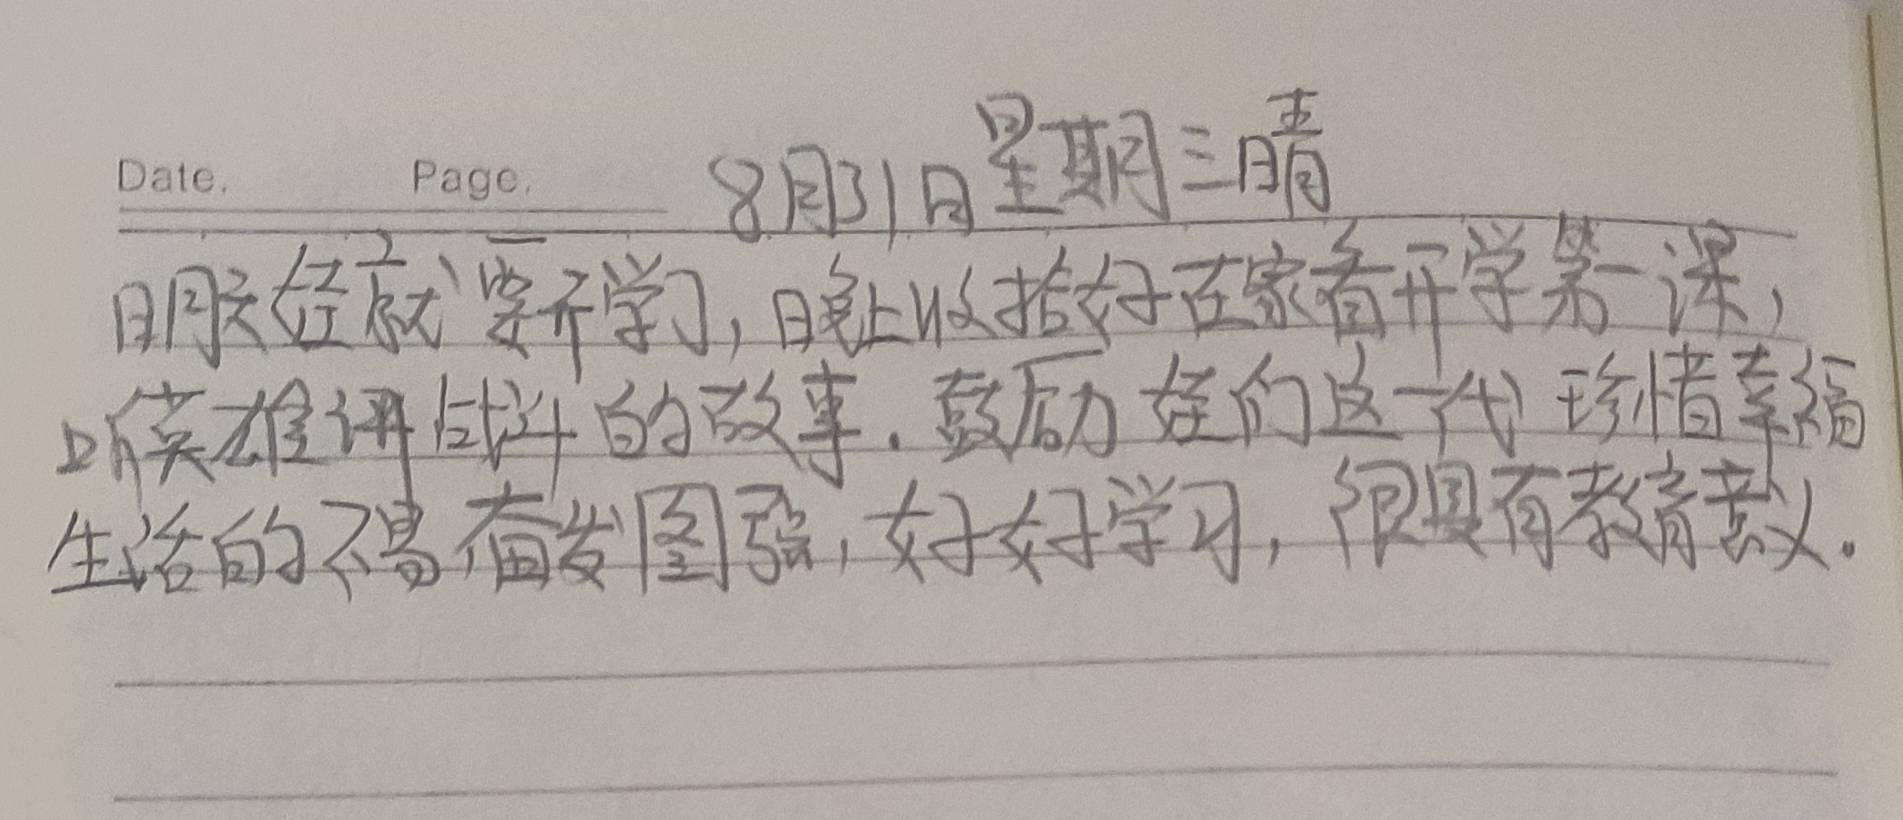 Date. Page. 8月31日星期三晴
明天娃就要开学了，晚上收拾好在家看开学第一课，
听英雄讲战斗的故事.鼓励娃们这一代珍惜幸福
生活的不易,奋发图强,好好学习,很具有教育意义。